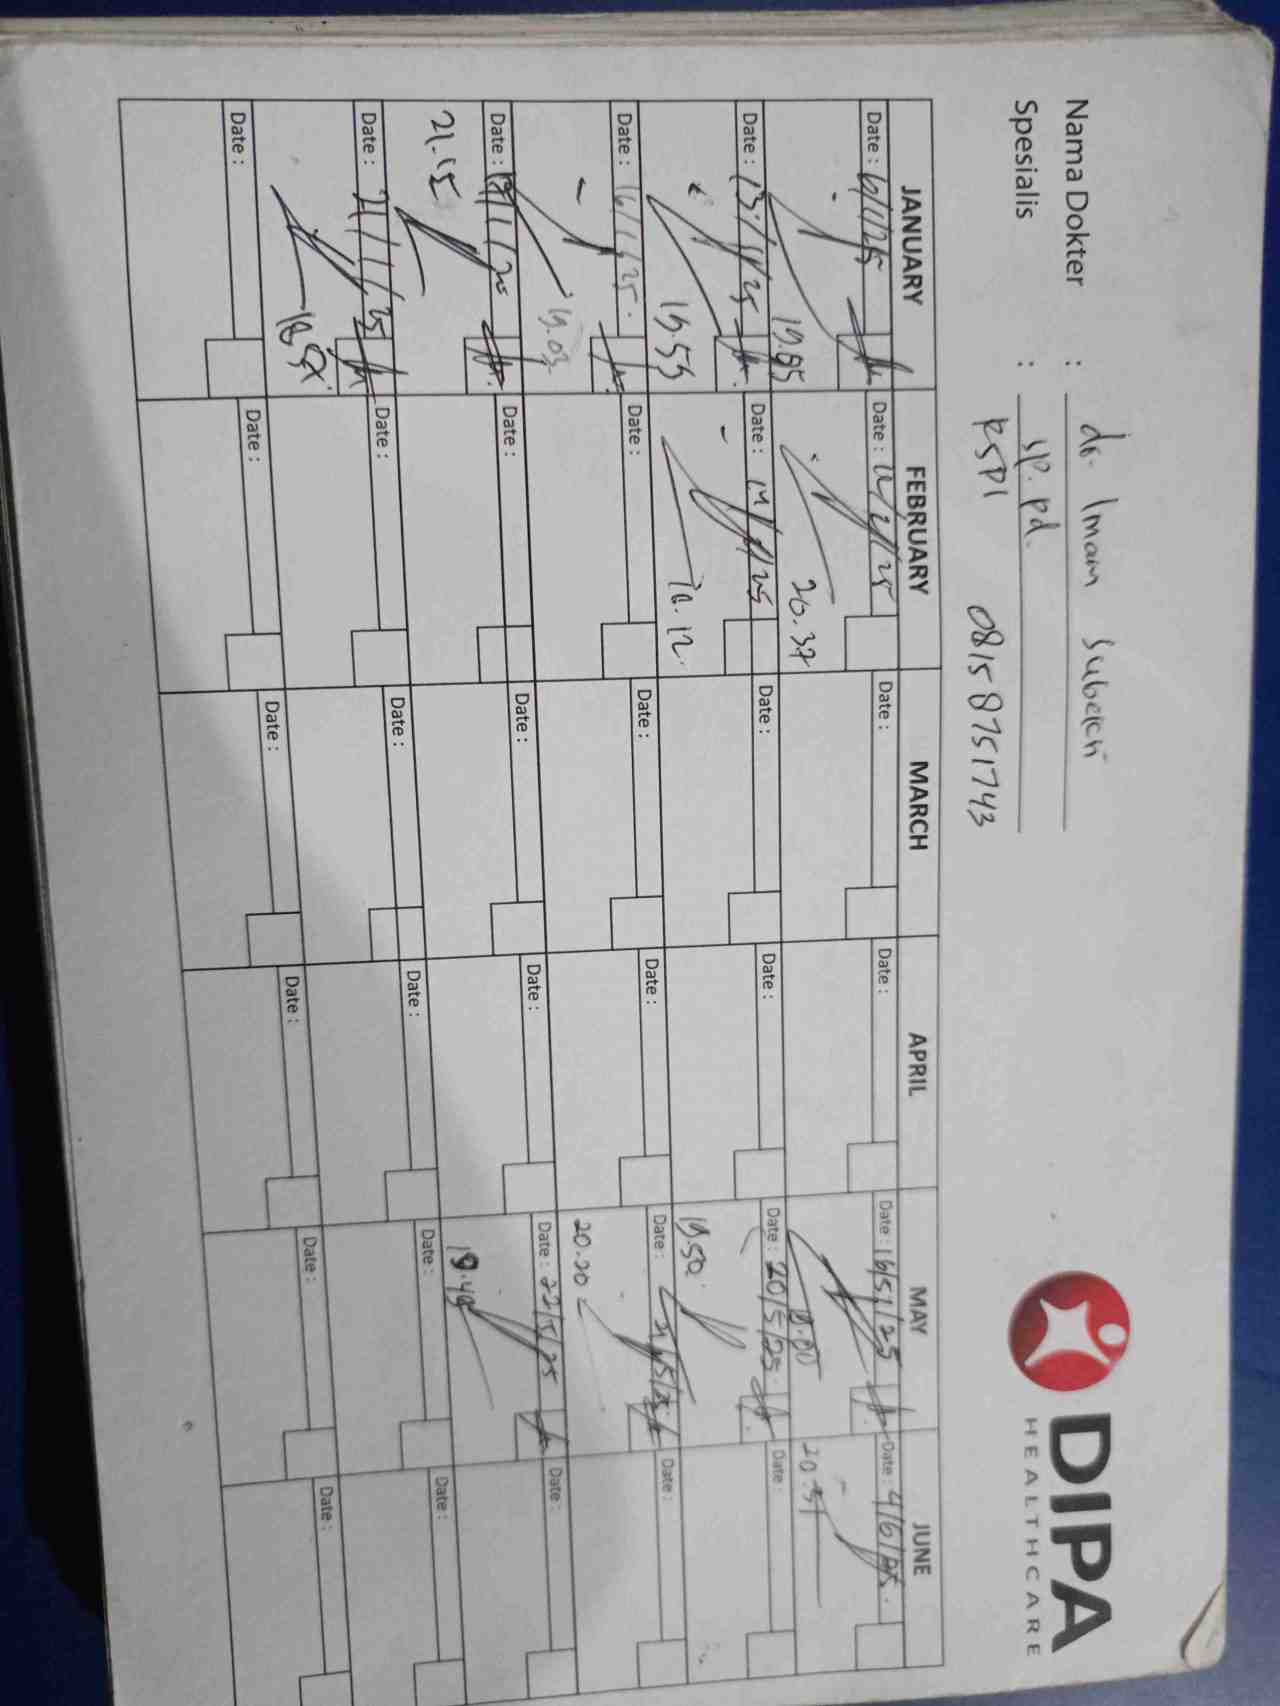 DIPA
HEALTHCARE
Nama Dokter : dr. Imam Subekti
Spesialis : sp. pd.
RSPI 0815 8751743
JANUARY FEBRUARY MARCH APRIL MAY JUNE
Date : 6/1/25 Date : Date : Date : Date : 16/5/25 Date : 4/6/25
20.37 20.51
Date : 13/1/25 Date : Date : Date : Date : 20/5/25 Date :
19.53 19.50
Date : 16/1/25 Date : Date : Date : Date : 21/5/25 Date :
19.03 20.20
Date : Date : Date : Date : Date : 22/5/25 Date :
21.15 19.49
Date : 21/1/25 Date : Date : Date : Date : Date :
Date : Date : Date : Date : Date : Date :